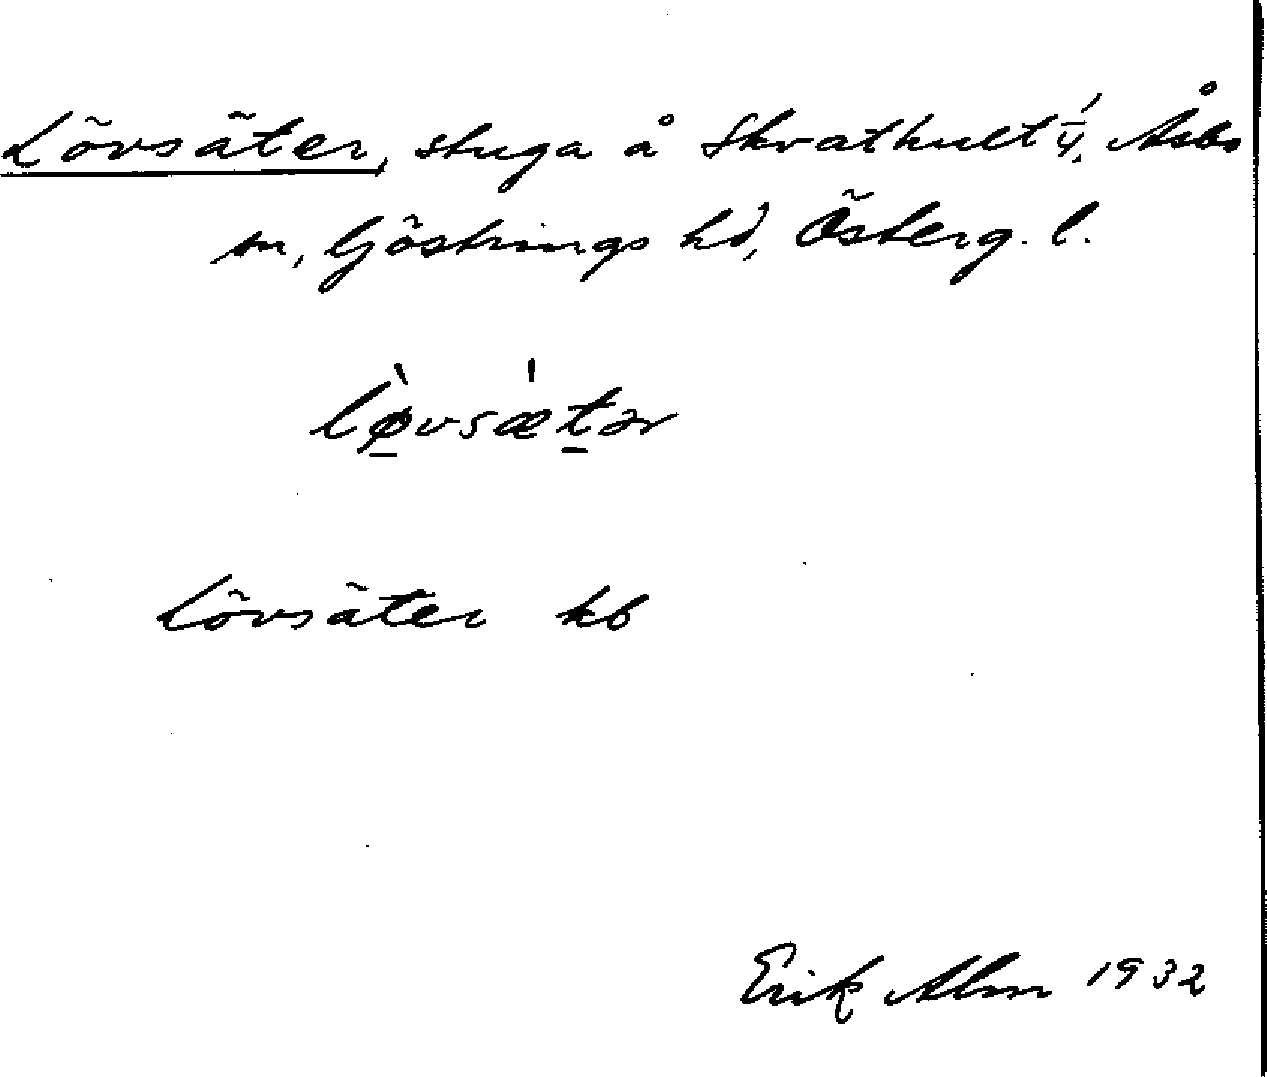 Lövsäter, stuga å Skrathult 1/4, Åsbo
sn, Göstrings hd, Österg. l.
lø̠̀vsæ̍t̠ər
Lövsäter kb
Erik Alm 1932